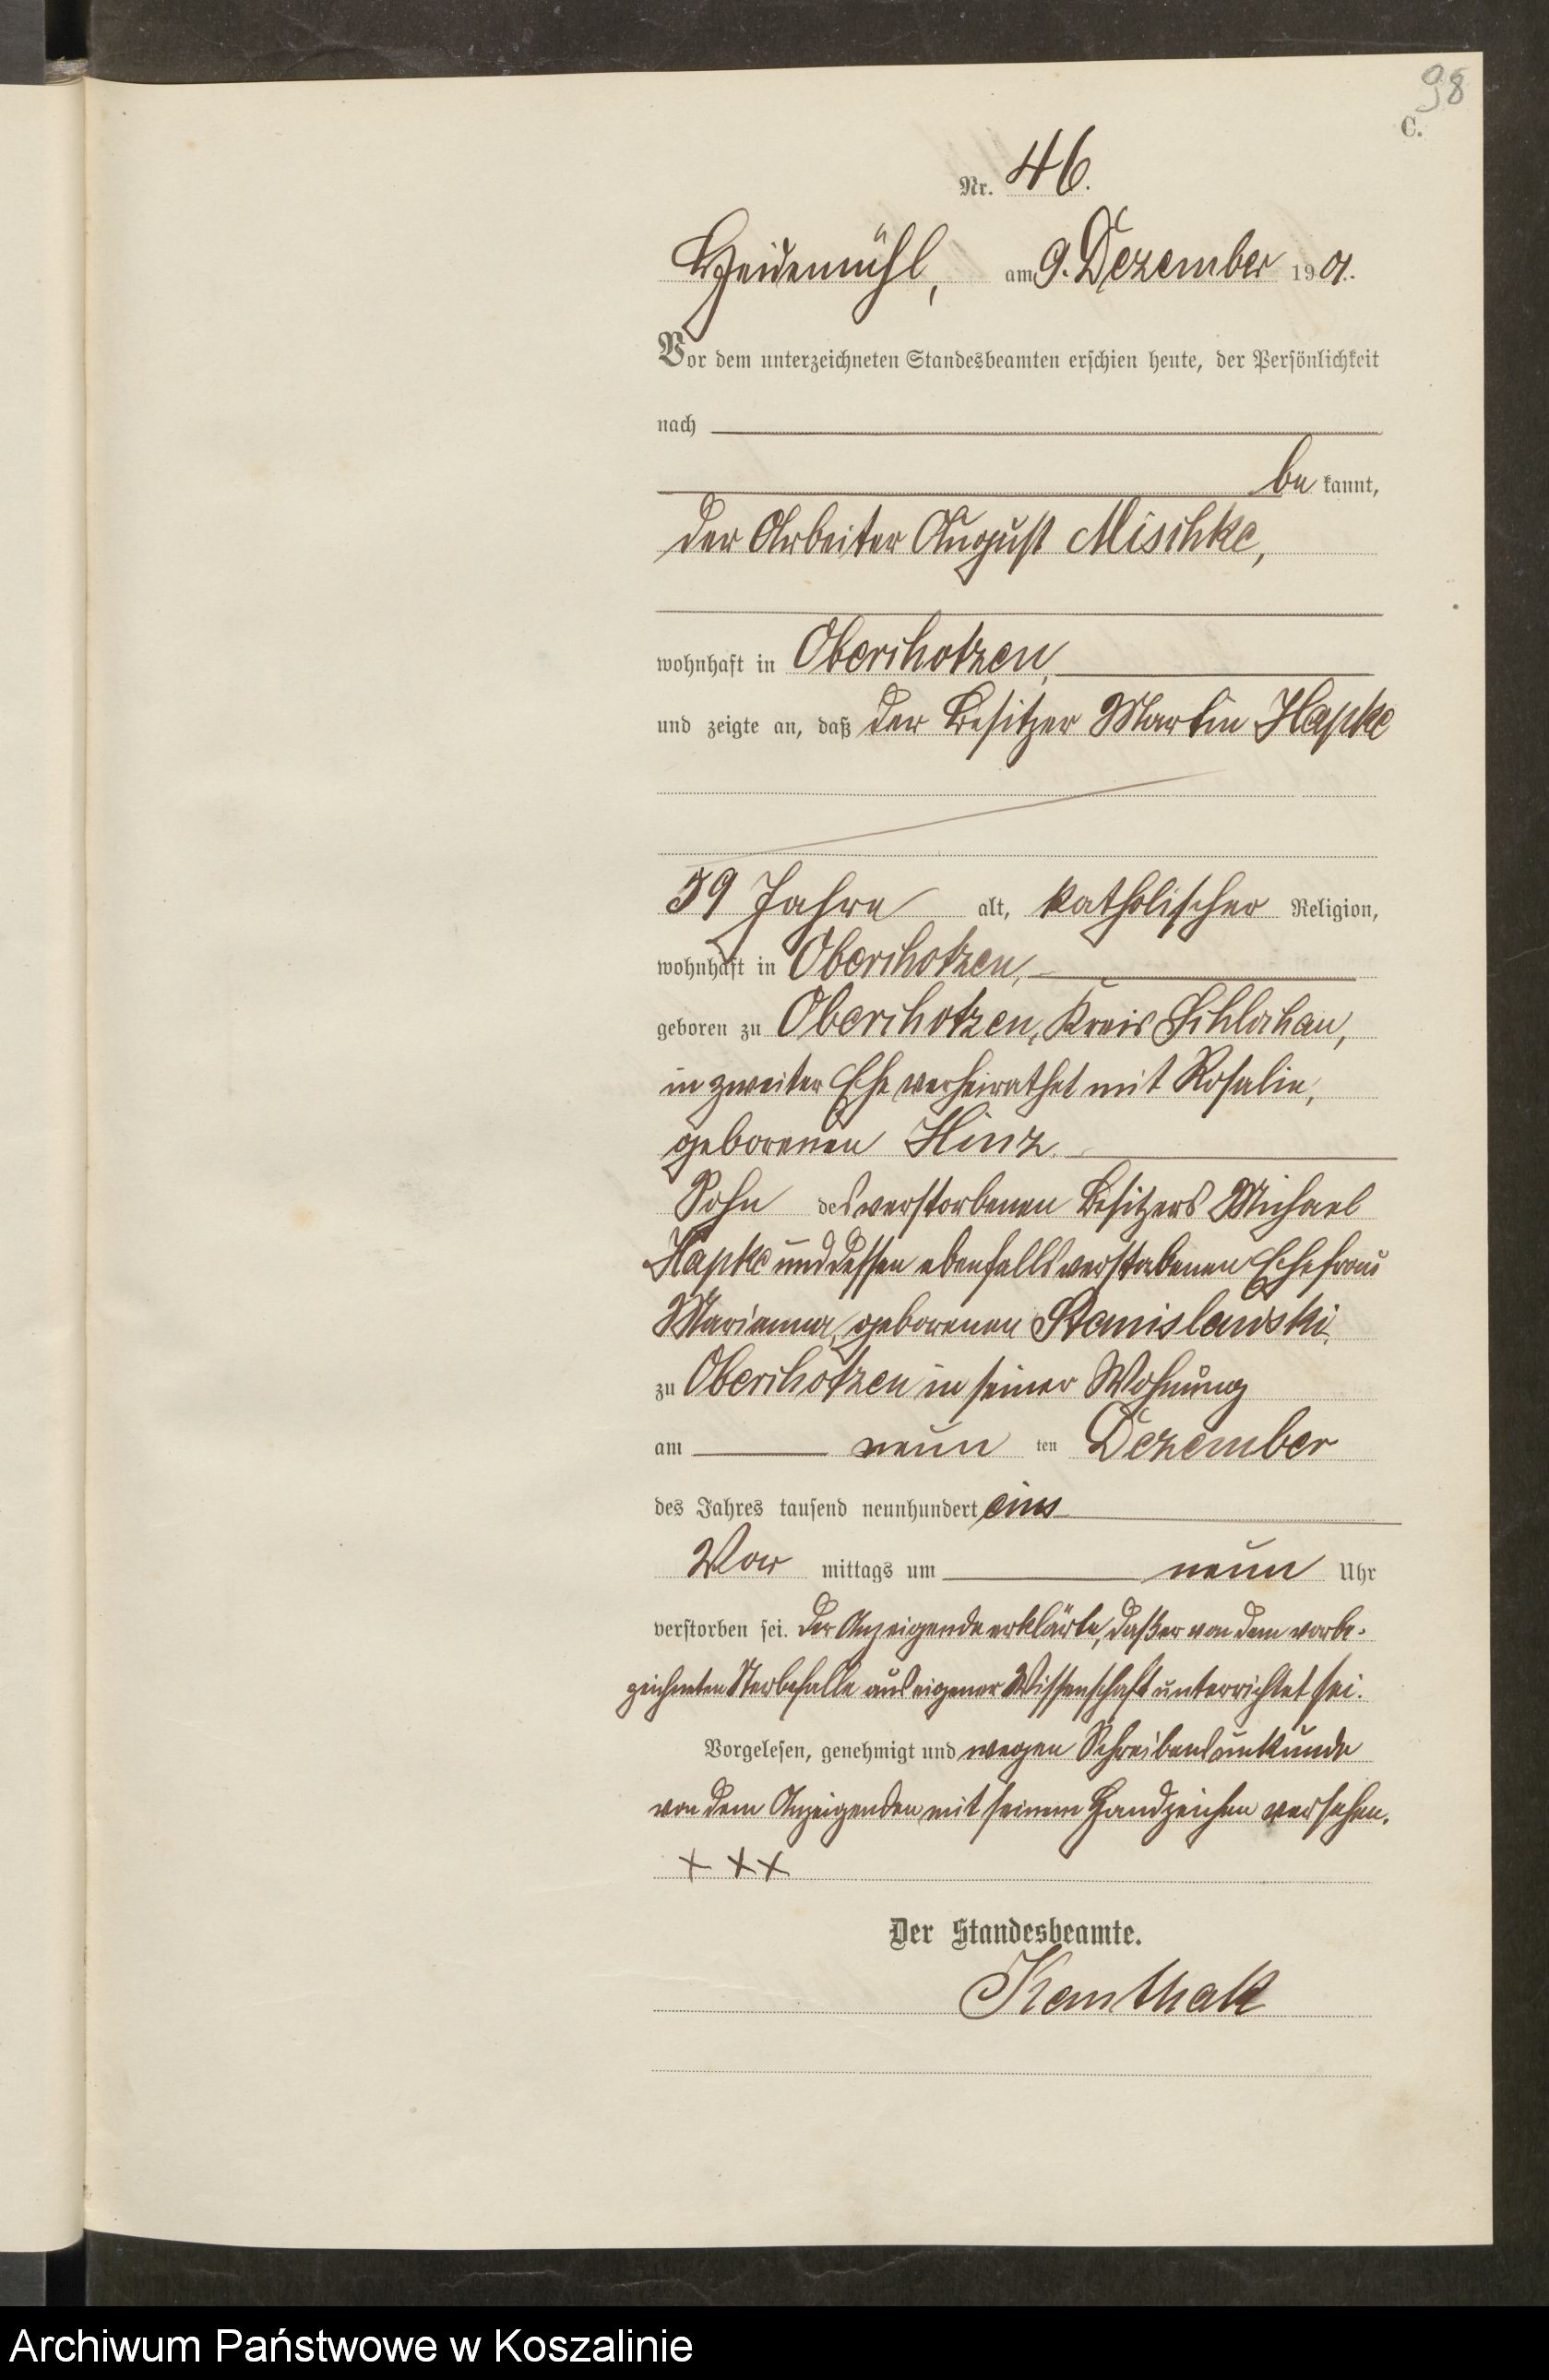 98
C.
Nr. 46.
Heidemühl, am 9. Dezember 1901.
Vor dem unterzeichneten Standesbeamten erschien heute, der Persönlichkeit
nach
be kannt,
der Arbeiter August Mischke,
wohnhaft in Oberchotzen,
und zeigte an, daß der Besitzer Martin Hapke
59 Jahre alt, katholischer Religion,
wohnhaft in Oberchotzen,
geboren zu Oberchotzen, Kreis Schlochau,
in zweiter Ehe verheirathet mit Rosalie,
geborenen Hinz.
Sohn des verstorbenen Besitzers Michael
Hapke und dessen ebenfalls verstorbenen Ehefrau
Marianna, geborenen Stanislawski.
zu Oberchotzen in seiner Wohnung
am neun ten Dezember
des Jahres tausend neunhundert eins
Vor mittags um neun Uhr
verstorben sei. Der Anzeigende erklärte, daß er von dem vorbe-
zeichneten Sterbefalle aus eigener Wissenschaft unterrichtet sei.
Vorgelesen, genehmigt und wegen Schreibensunkunde
von dem Anzeigenden mit seinem Handzeichen versehen.
+ + +
Der Standesbeamte.
Kanthak
Archiwum Państwowe w Koszalinie